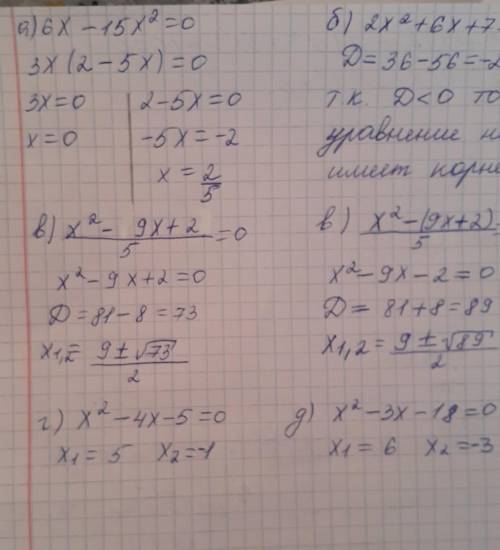 а) 6x - 15x² = 0
3x(2 - 5x) = 0
3x = 0 | 2 - 5x = 0
x = 0 | -5x = -2
x = 2/5
б) 2x² + 6x + 7
D = 36 - 56 = -2
т.к. D < 0 то
уравнение н
имеет корне
в) x² - 9x + 2 / 5 = 0
x² - 9x + 2 = 0
D = 81 - 8 = 73
x1,2 = 9 ± √73 / 2
в) x² - (9x + 2) / 5
x² - 9x - 2 = 0
D = 81 + 8 = 89
x1,2 = 9 ± √89 / 2
г) x² - 4x - 5 = 0
x1 = 5 x2 = -1
д) x² - 3x - 18 = 0
x1 = 6 x2 = -3